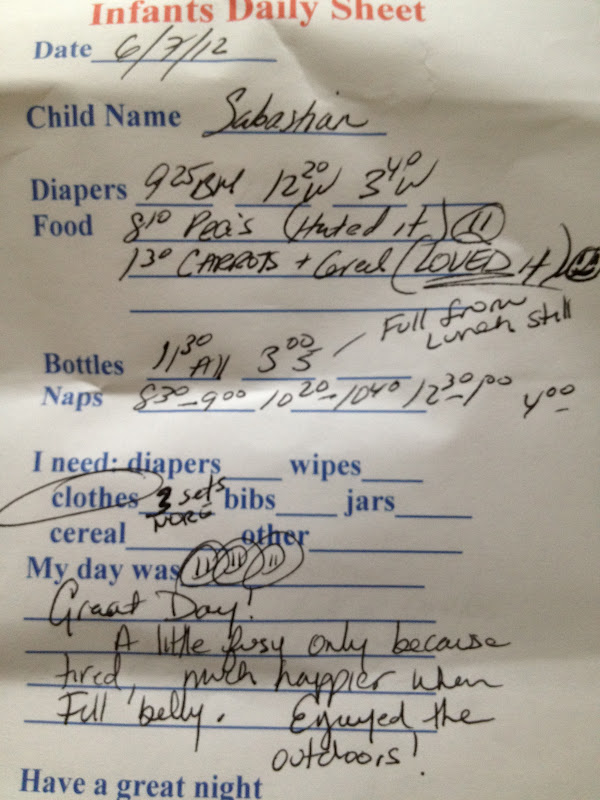 Infants Daily Sheet
Date 6/7/12
Child Name Sabastian
Diapers 9 25 BM 12 20 W 3 40 W
Food 8 10 Pea's (Hated it)
1 30 CARROTS + Cereal (LOVED it)
Full from
Lunch still
Bottles 11 30 All 3 00 3
Naps 8 30 - 9 00 10 20 - 10 40 12 30 - 1 00 4 00 -
I need: diapers wipes
clothes 3 sets bibs jars
MORE
cereal other
My day was
Great Day!
A little fusy only because
tired, much happier when
Full belly. Enjoyed the
outdoors!
Have a great night